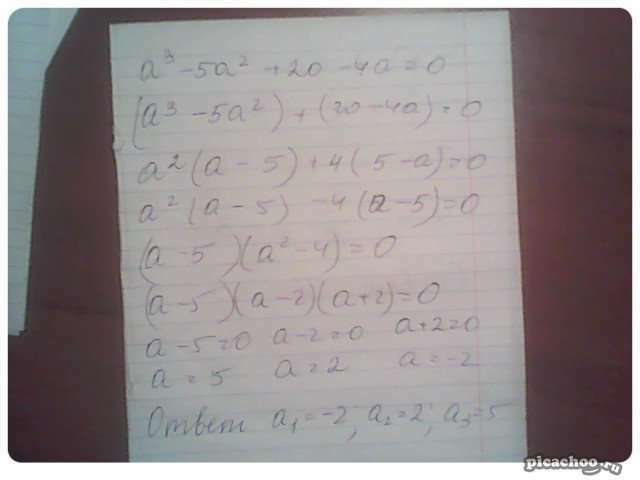 a³ - 5a² + 20 - 4a = 0
(a³ - 5a²) + (20 - 4a) = 0
a²(a - 5) + 4(5 - a) = 0
a²(a - 5) - 4(a - 5) = 0
(a - 5)(a² - 4) = 0
(a - 5)(a - 2)(a + 2) = 0
a - 5 = 0 a - 2 = 0 a + 2 = 0
a = 5 a = 2 a = -2
Ответ a₁ = -2; a₂ = 2; a₃ = 5
picachoo.ru